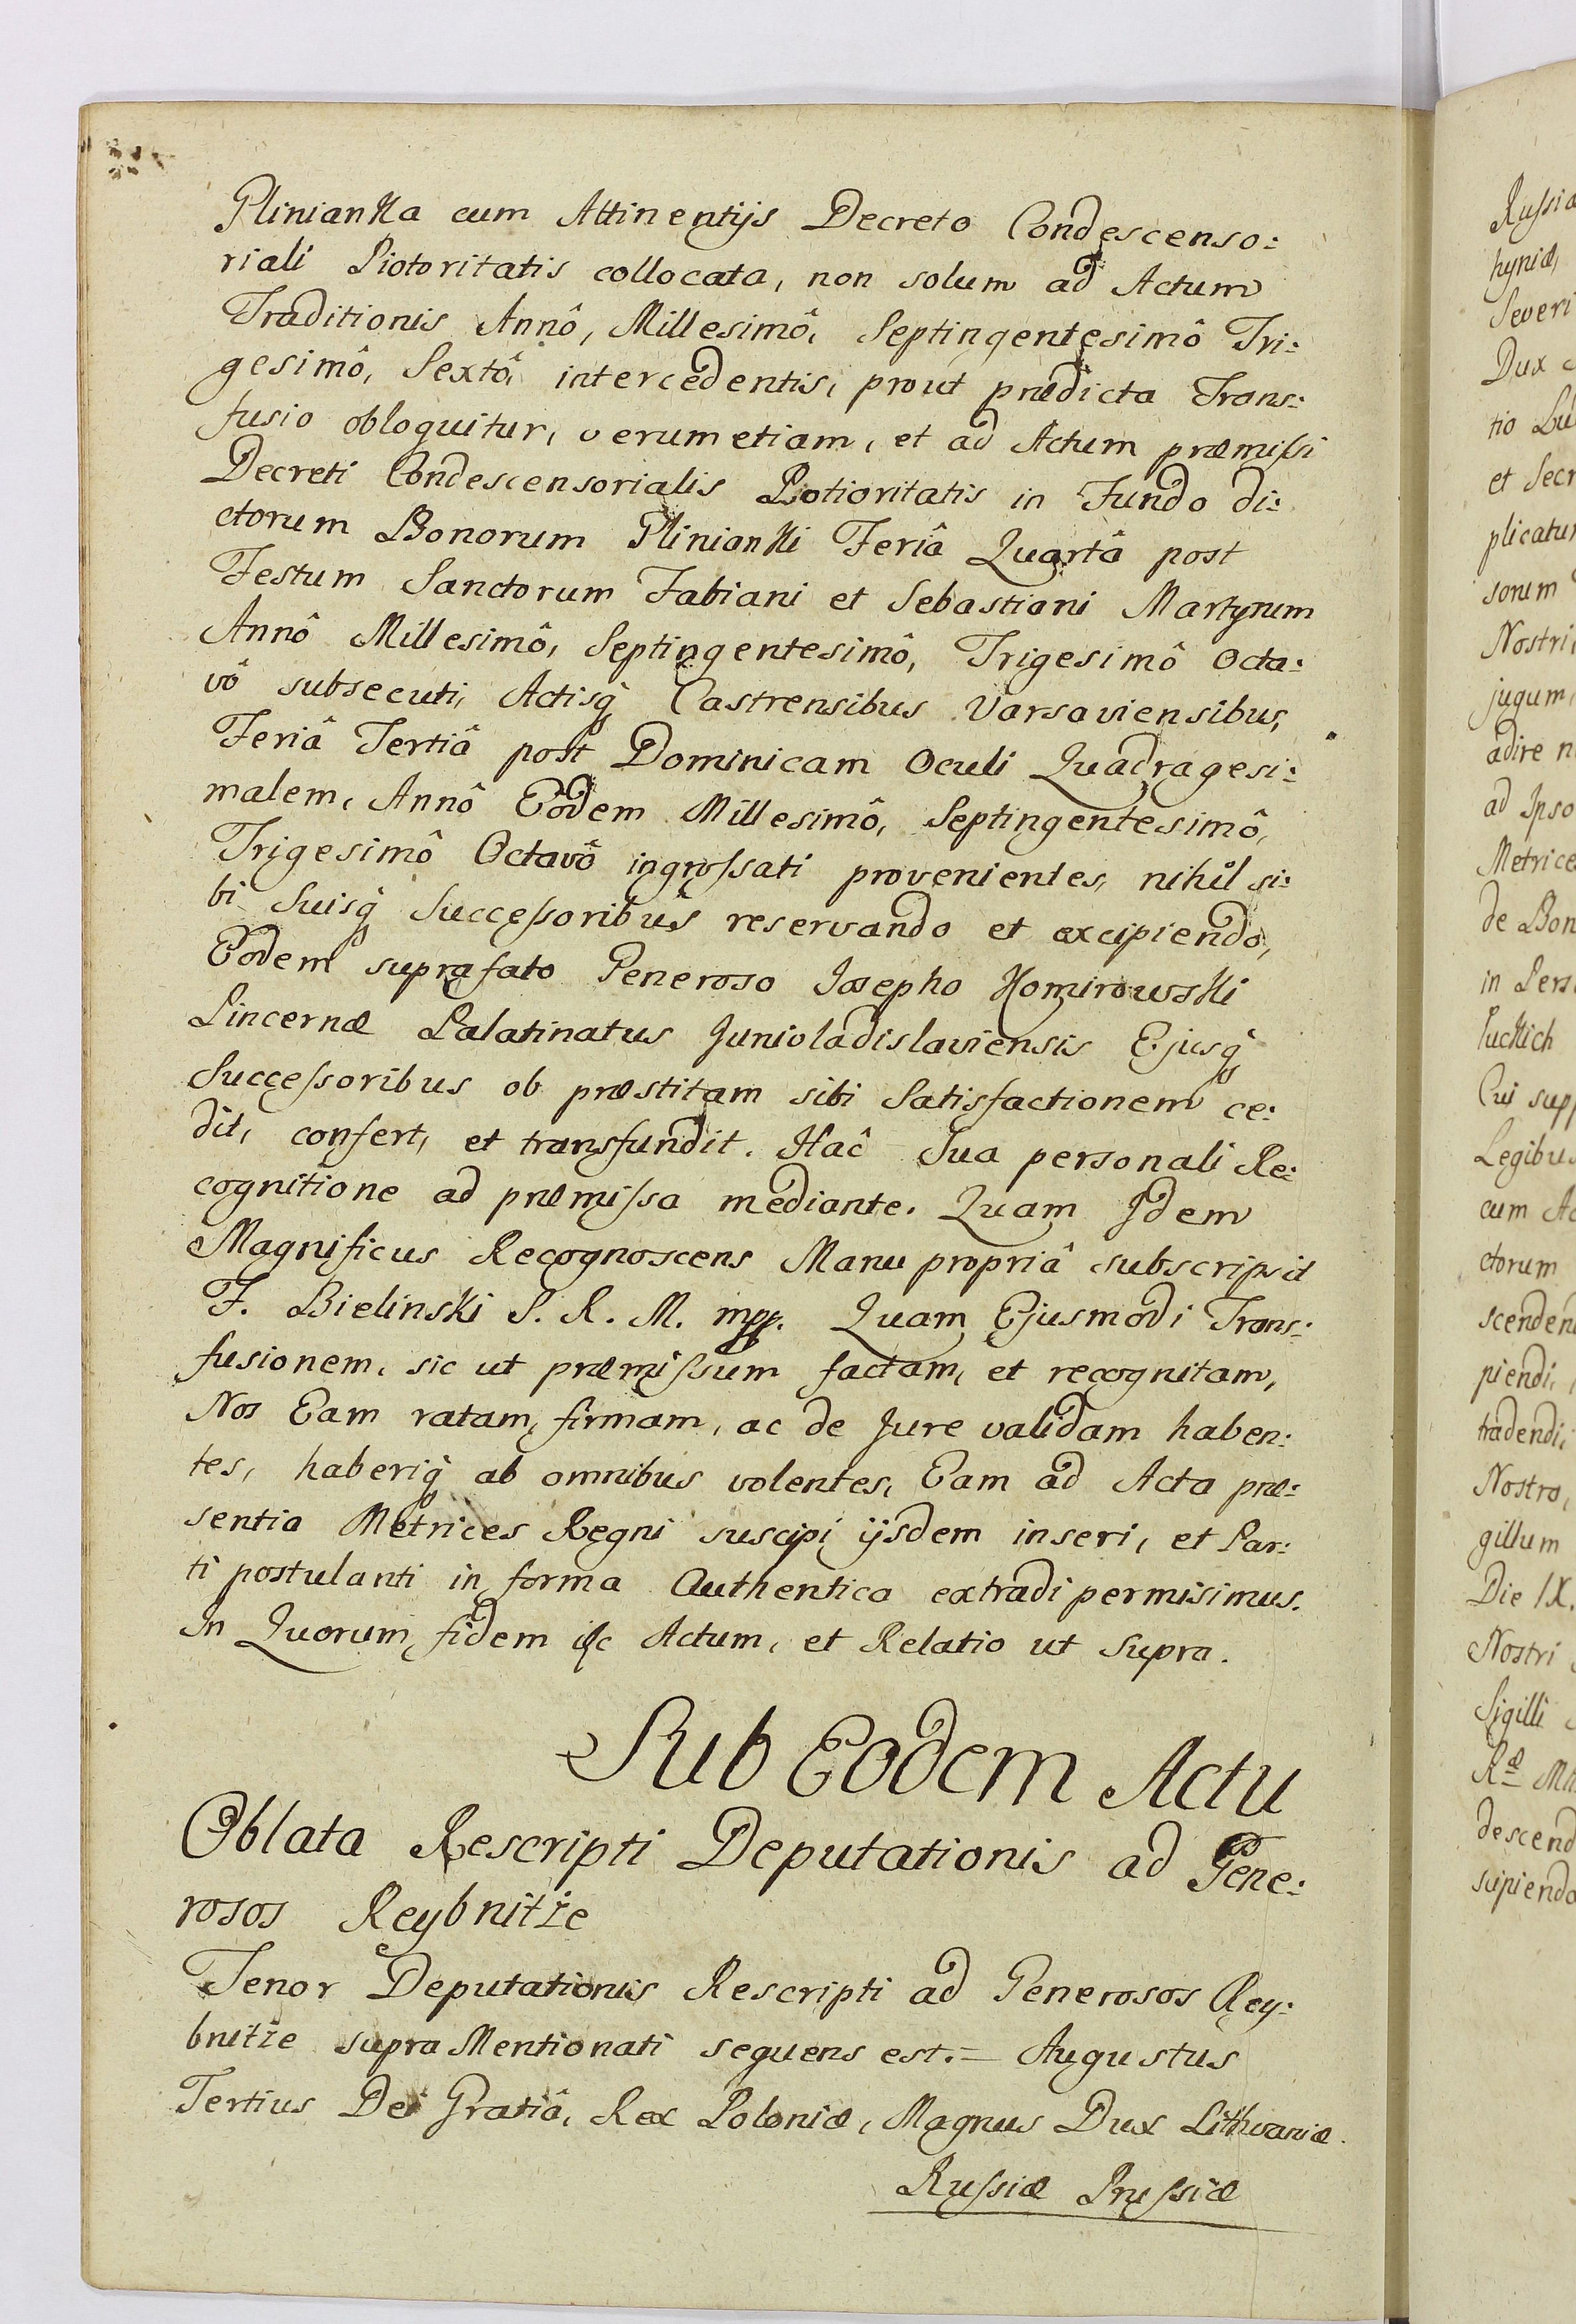 Glinianka cum Attinentijs Decreto Condescenso:
riali Piotoritatis collocata, non solum ad Actum
Traditionis Annô, Millesimô, Septingentesimô Tri:
gesimô, Sextô, intercedentis, prout prædicta Trans:
fusio obloquitur, verumetiam, et ad Actum præmissi
Decreti Condescensorialis Potioritatis in Fundo di:
ctorum Bonorum Glinianki Feriâ Quartâ post
Festum Sanctorum Fabiani et Sebastiani Martyrum
Annô Millesimô, Septingentesimô, Trigesimô Octa:
vô subsecuti, Actisq̀ Castrensibus Varsaviensibus,
Feriâ Tertiâ post Dominicam Oculi Quadragesi:
malem, Annô Eodem Millesimô, Septingentesimô,
Trigesimô Octavô ingrossati provenientes, nihil si:
bi Suisq̀ Successoribus reservando et excipiendo,
Eodem suprafato Generoso Josepho Komirowski
Pincernæ Palatinatus Junioladislaviensis Ejusq̀
Successoribus ob præstitam sibi Satisfactionem ce:
dit, confert, et transfundit. Hac Sua personali Re:
cognitione ad præmissa mediante. Quam Idem
Magnificus Recognoscens Manu propriâ subscripsit
F. Bielinski S. R. M. mpp. Quam Ejusmodi Trans:
fusionem, sic ut præmissum factam, et recognitam,
Nos Eam ratam, firmam, ac de Jure validam haben:
tes, haberiq̀ ab omnibus volentes, Eam ad Acta præ:
sentia Metrices Regni suscipi ijsdem inseri, et Par:
ti postulanti in forma Authentica extradi permisimus.
In Quorum fidem &c Actum, et Relatio ut Supra.
Sub Eodem Actu
Oblata Rescripti Deputationis ad Gene:
rosos Reybnitze
Tenor Deputationis Rescripti ad Generosos Rey:
bnitze supra Mentionati sequens est. = Augustus
Tertius Dei Gratiâ, Rex Poloniæ, Magnus Dux Lithvaniæ.
Russiæ Prussiæ
Russia
hyniæ,
Severi
Dux
tio
et Secr
plicatur
sorum
Nostri
jugum,
adire n
ad Ipso
Metrice
de Bon
in Pers
Puckich
Cui supp
Legibus
cum Ac
ctorum
scendend
piendi,
tradendi,
Nostro,
gillum
Die IX.
Nostri
Sigilli
Ræ
descend
scipiendo